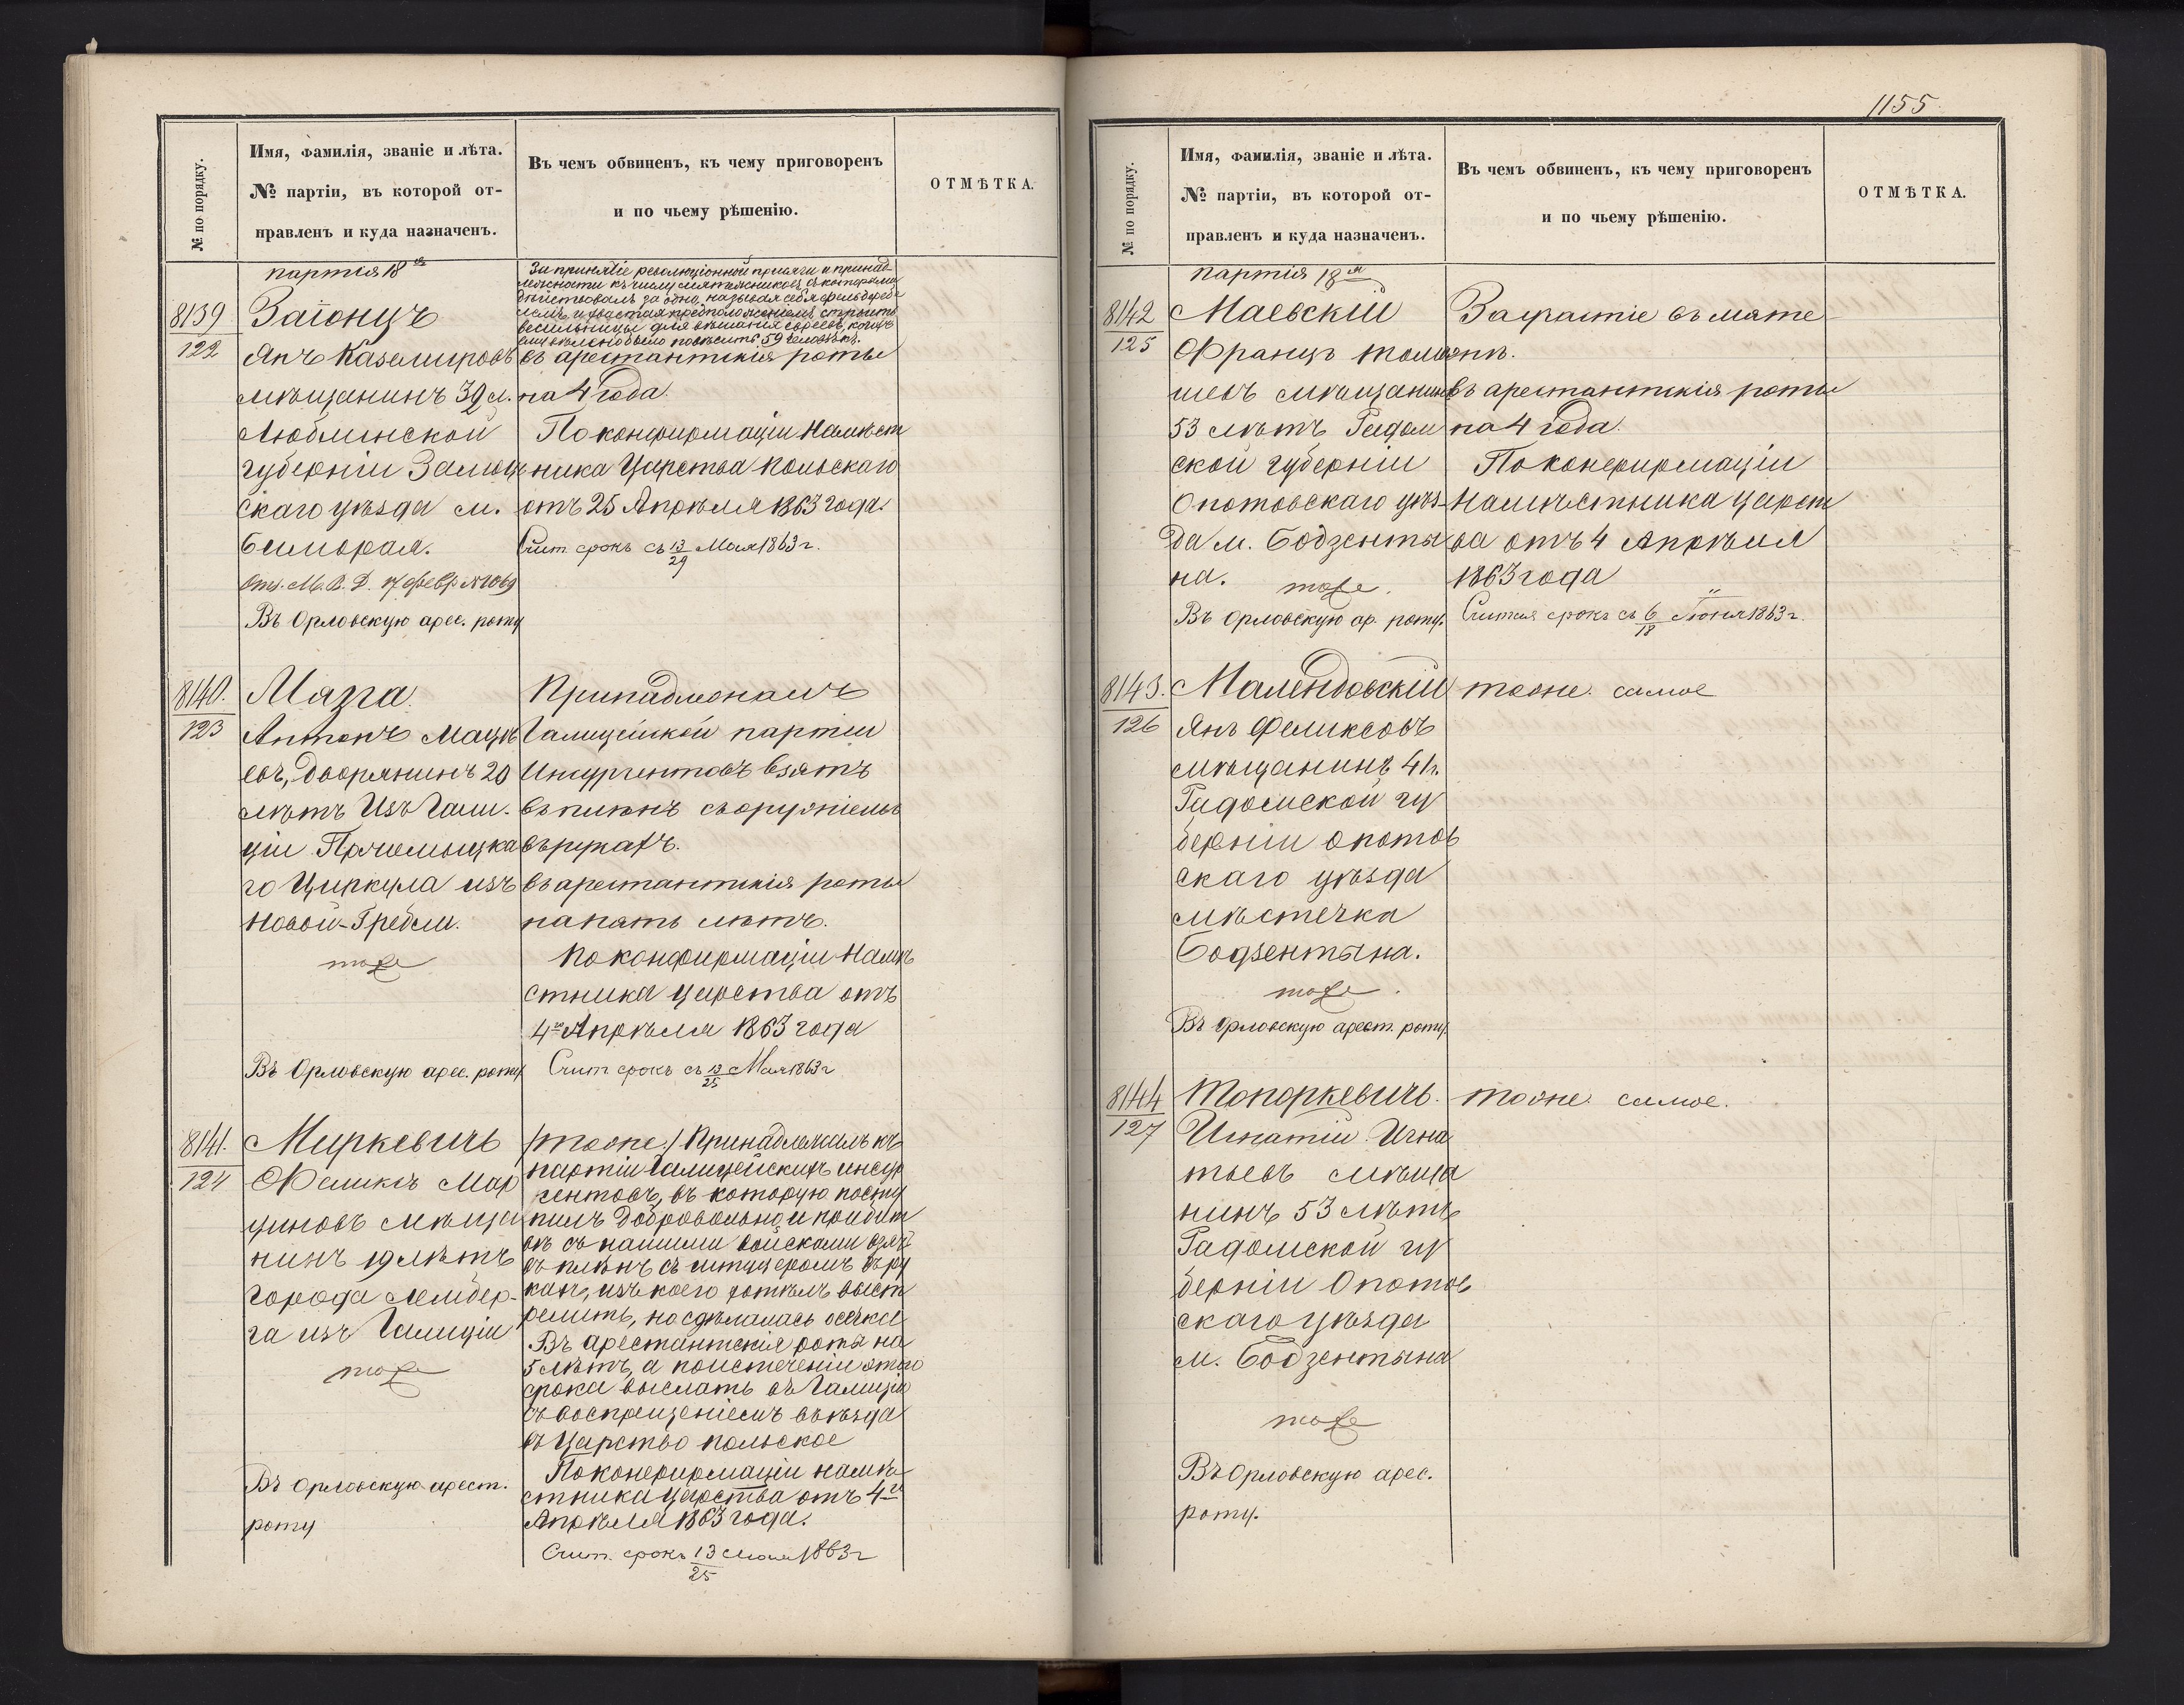 1155.
№ по порядку.
Имя, фамилія, званіе и лѣта.
№ партіи, въ которой от-
правленъ и куда назначенъ.
Въ чемъ обвиненъ, къ чему приговоренъ
и по чьему рѣшенію.
ОТМѢТКА.
партія 18я
8139
122
Заіонцъ
Янъ Каземировъ
мѣщанинъ 39 л.
Люблинской
губерніи Замой
скаго уѣзда м.
Билгорая.
Отз. М. В. Д. 17 февр № 1069
Въ Орловскую арес. роту
За принятіе революціонной присяги и принад-
лежности къ числу мятежниковъ съ которыми
дѣйствовалъ за одно, называя себя фельдфебе
лемъ и хвастая предположеніемъ строить
висильницы для вѣшанія евреевъ, коихъ
ему велено было повѣсить 59 человѣкъ.
въ арестантскія роты
на 4 года.
По конфирмаціи Намѣст
ника Царства Польскаго
отъ 25 Апрѣля 1863 года.
Счит. срокъ съ 13/29 Мая 1863 г.
8140.
123
Мязга.
Антонъ Мацѣ
евъ, Дворянинъ 20
лѣтъ Изъ Гали-
ціи Пржемыцка
го Циркула изъ
Новой-Гребли.
тоже
Въ Орловскую арес. роту
Принадлежалъ
Галицейской партіи
Инсургентовъ взятъ
въ плѣнъ съ оружіемъ
въ рукахъ.
въ арестантскія роты
на пять лѣтъ.
По конфирмаціи Намѣ
стника Царства отъ
4го Апрѣля 1863 года
Счит срокъ съ 13/25 Мая 1863 г
8141.
124
Миркевичъ
Феликсъ Мар
циновъ Мѣща
нинъ 19 лѣтъ
города Лембер-
га изъ Галиціи
тоже
Въ Орловскую арест.
роту
/тоже/ Принадлежалъ къ
партіи Галицейскихъ инсур
гентовъ, въ которую посту
пилъ добровольно и при бит
вѣ съ нашими войсками взятъ
въ плѣнъ съ штуцеромъ въ ру
кахъ, изъ коего хотѣлъ выст
релить, но сдѣлалась осечка
Въ арестантскія роты на
5 лѣтъ, а по истеченіи этого
срока выслать въ Галицію
съ воспрещеніемъ въѣзда
въ Царство Польское
По конфирмаціи намѣ
стника Царства отъ 4го
Апрѣля 1863 года.
Счит. срокъ 13/25 Мая 1863 г
№ по порядку.
Имя, фамилія, званіе и лѣта.
№ партіи, въ которой от-
правленъ и куда назначенъ.
Въ чемъ обвиненъ, къ чему приговоренъ
и по чьему рѣшенію.
ОТМѢТКА.
партія 18я
8142
125
Маевскій
Францъ Тома
шевъ мѣщанинъ
53 лѣтъ Радом
ской губерніи
Опотовскаго уѣз-
да м. Бодзенты
на.
тоже.
Въ Орловскую ар. роту.
За участіе въ мяте-
жѣ.
въ арестантскія роты
на 4 года.
По конфирмаціи
Намѣстника Царст
ва отъ 4 Апрѣля
1863 года
Считая срокъ съ 6/18 Іюня 1863 г.
8143.
126
Малендовскій
Янъ Феликсовъ
мѣщанинъ 41 л.
Радомской гу
берніи Опотов
скаго уѣзда
мѣстечка
Бодзентына.
тоже.
Въ Орловскую арест. роту.
тоже. самое
8144
127
Топоркевичъ.
Игнатій Игна
тьевъ мѣща
нинъ 53 лѣтъ
Радомской гу
берніи Опотов
скаго уѣзда
м. Бодзентына
тоже
Въ Орловскую арес.
роту.
тоже. самое.